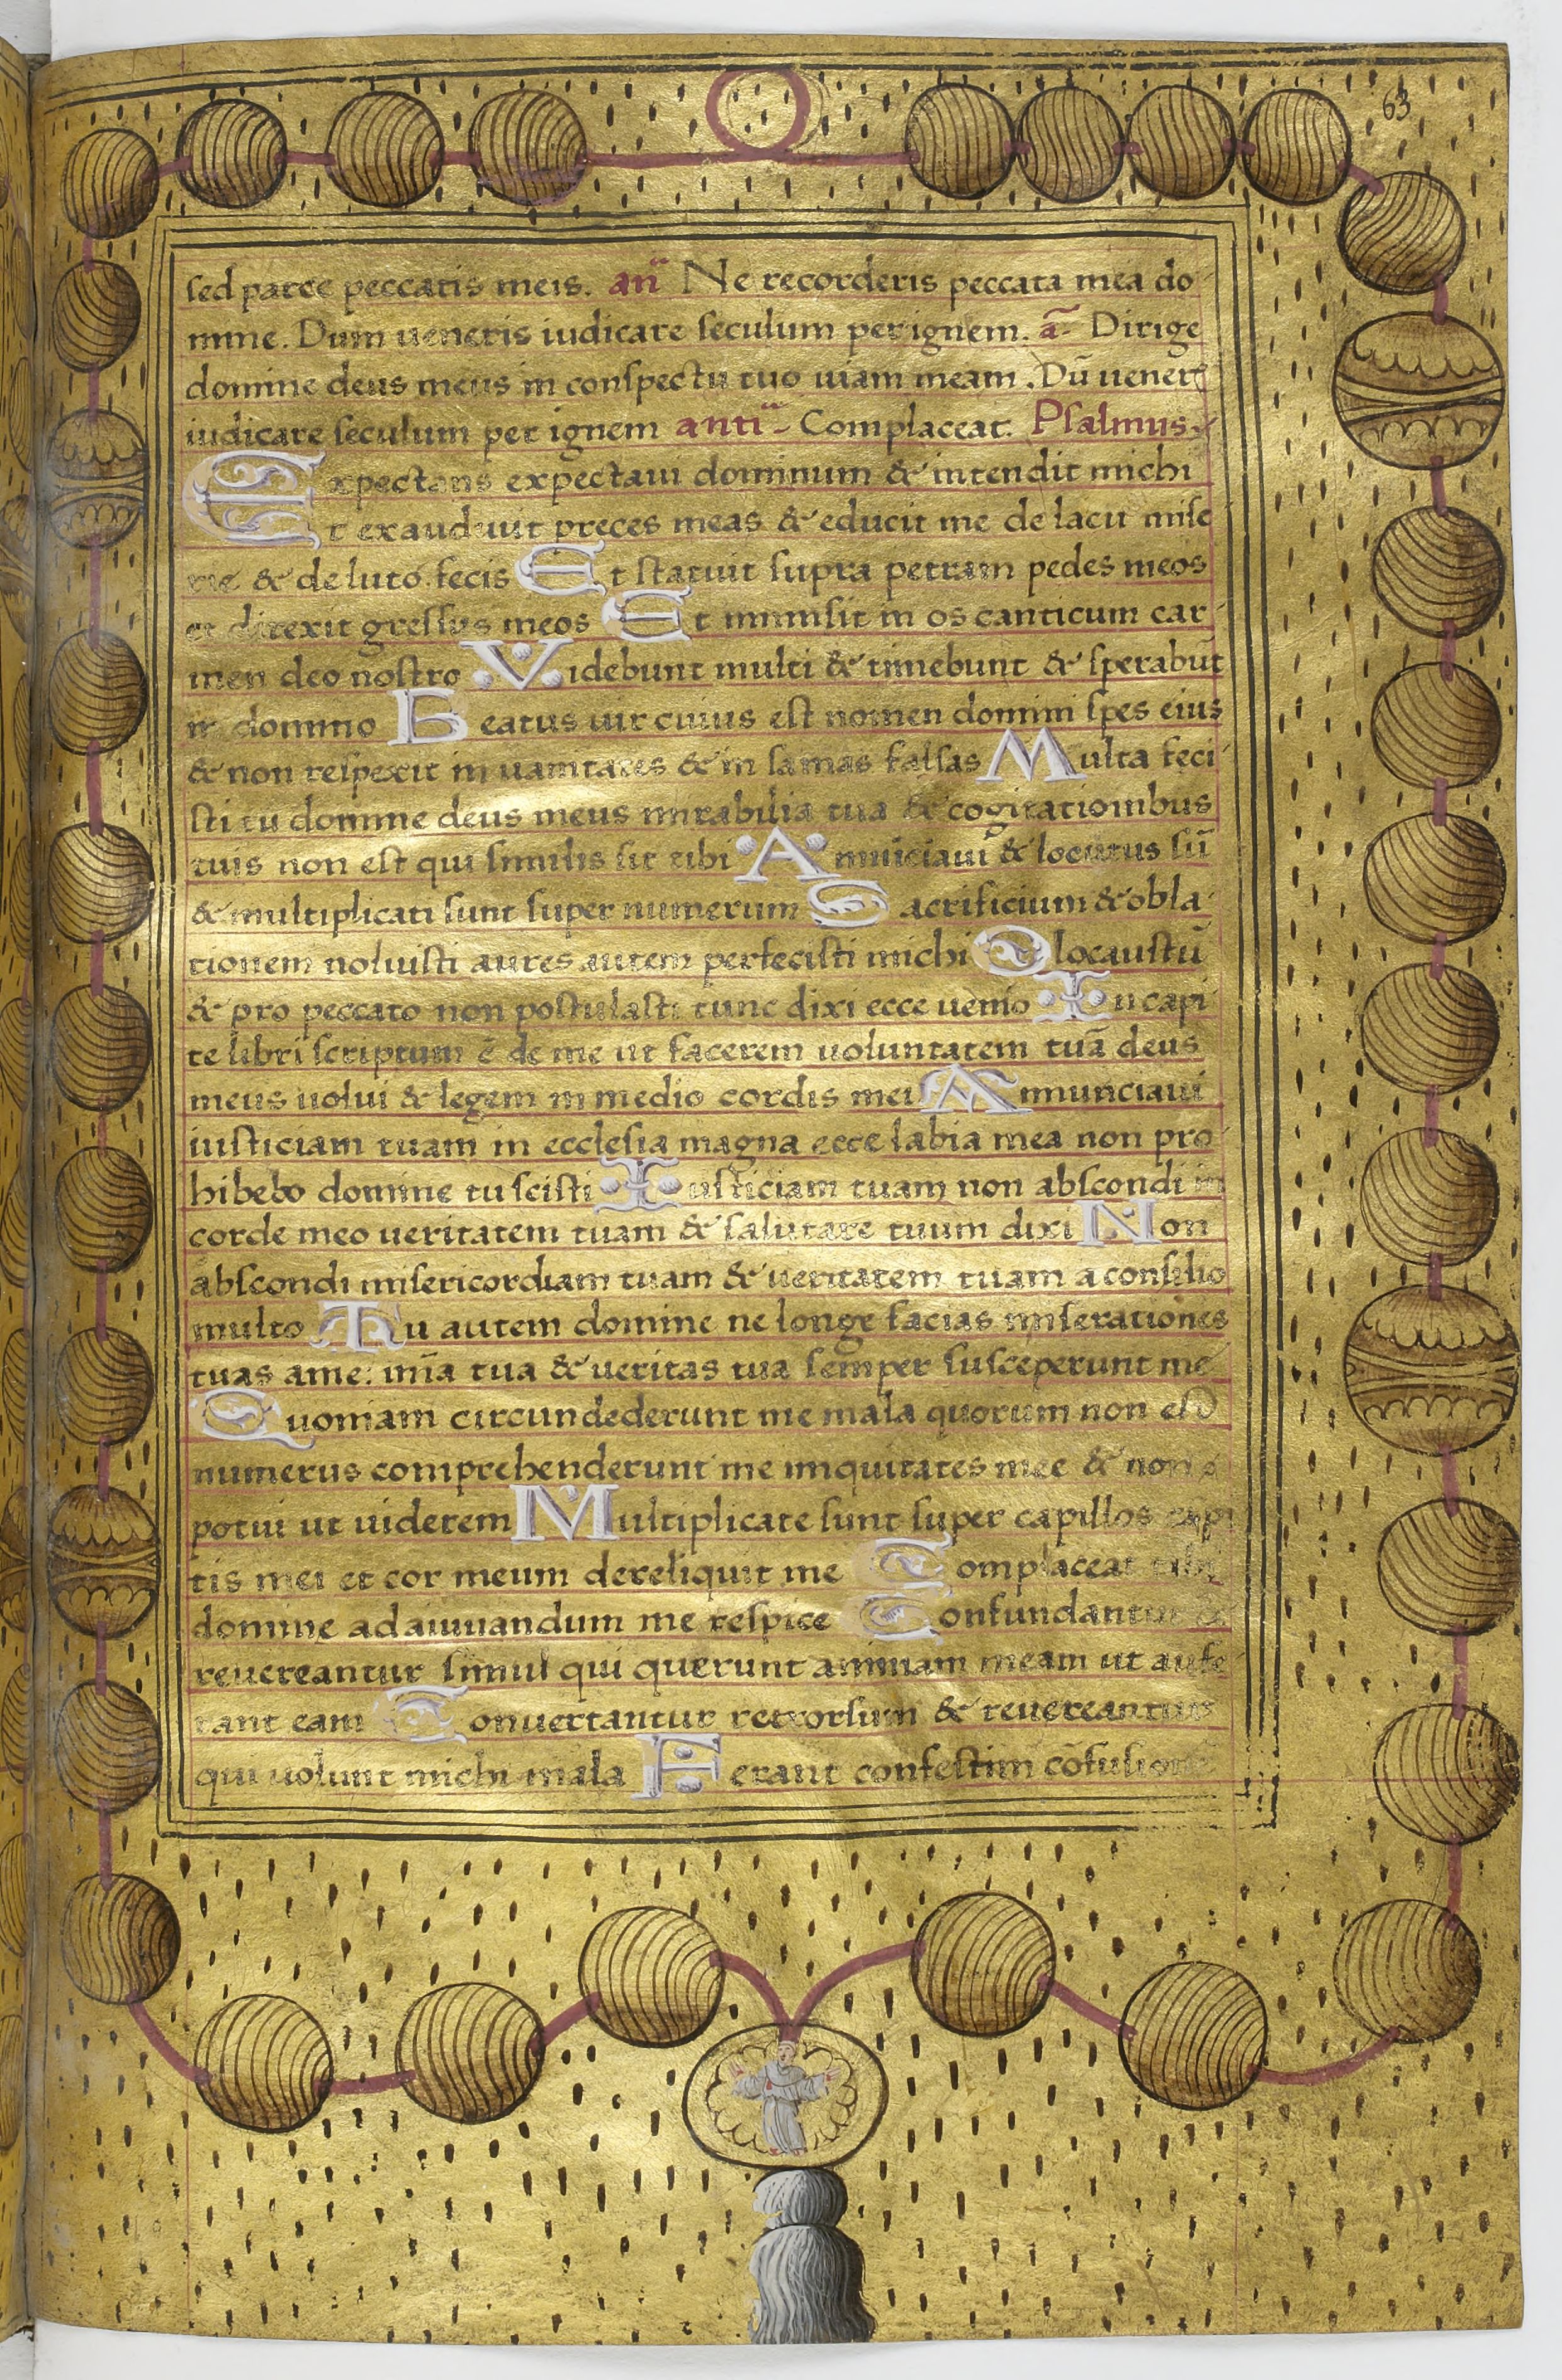 63
sed parce peccatis meis. an̄ Ne recorderis peccata mea do
mine. Dum ueneris iudicare seculum per ignem. ā Dirige
domine deus meus in conspectu tuo uiam meam. Dū uener
iudicare seculum per ignem anti Complaceat. Psalmus
Expectans expectaui dominum & intendit michi
Et exaudiuit preces meas & educit me de lacu mise
rie & de luto fecis Et statuit supra petram pedes meos
et direxit gressus meos Et immisit in os canticum car
men deo nostro Videbunt multi & timebunt & sperabūt
in domino Beatus uir cuius est nomen domini spes eius
& non respexit in uanitates & in sanias falsas Multa feci
sti tu domine deus meus mirabilia tua & cogitationibus
tuis non est qui similis sit tibi Annuiciaui & locutus sū
& multiplicati sunt super numerum Sacrificium & obla
tionem noluisti aures autem perfecisti michi Olocaustū
& pro peccato non postulasti tunc dixi ecce uenio In capi
te libri scriptum ē de me ut facerem uoluntatem tuā deus
meus uolui & legem in medio cordis mei Annunciaui
iusticiam tuam in ecclesia magna ecce labia mea non pro
hibebo domine tu scisti Iusticiam tuam non abscondi in
corde meo ueritatem tuam & salutare tuum dixi Non
abscondi misericordiam tuam & ueritatem tuam a consilio
multo Tu autem domine ne longe facias miserationes
tuas ame: mīa tua & ueritas tua semper susceperunt me
Quoniam circundederunt me mala quorum non est
numerus comprehenderunt me iniquitates mee & non
potui ut uiderem Multiplicate sunt super capillos capi
tis mei et cor meum dereliquit me Complaceat tibi
domine ad aiuuandum me respice Confundantur &
reuereantur simul qui querunt animam meam ut aufe
rant eam Conuertantur retrorsum & reuereantur
qui uolunt michi mala Ferant confestim cōfusionē